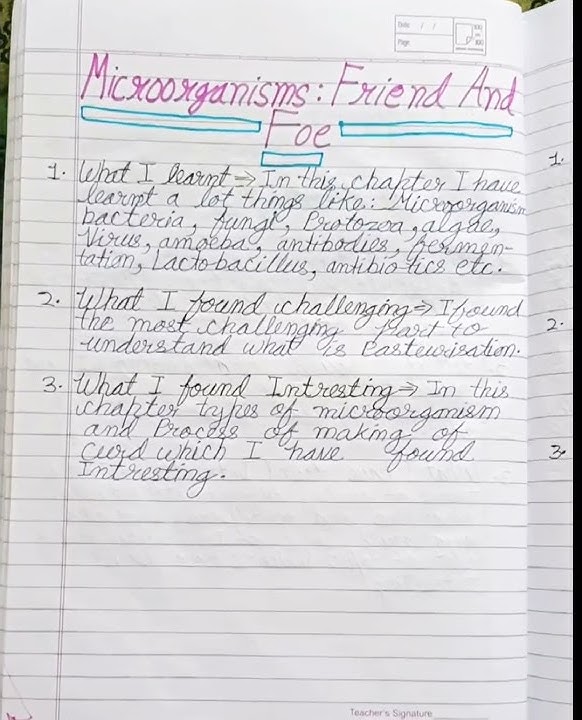 Date / /
Page
Microorganisms: Friend And
Foe
1. What I learnt ⇒ In this chapter I have
learnt a lot things like: Microorganism
bacteria, fungi, Protozoa, algae,
Virus, amoeba, antibodies, fermen-
tation, Lactobacillus, antibiotics etc.
2. What I found challenging ⇒ I found
the most challenging part to
understand what is Pasteurisation.
3. What I found Intresting ⇒ In this
chapter types of microorganism
and Process of making of
curd which I have found
Intresting.
Teacher's Signature
1.
2.
3.